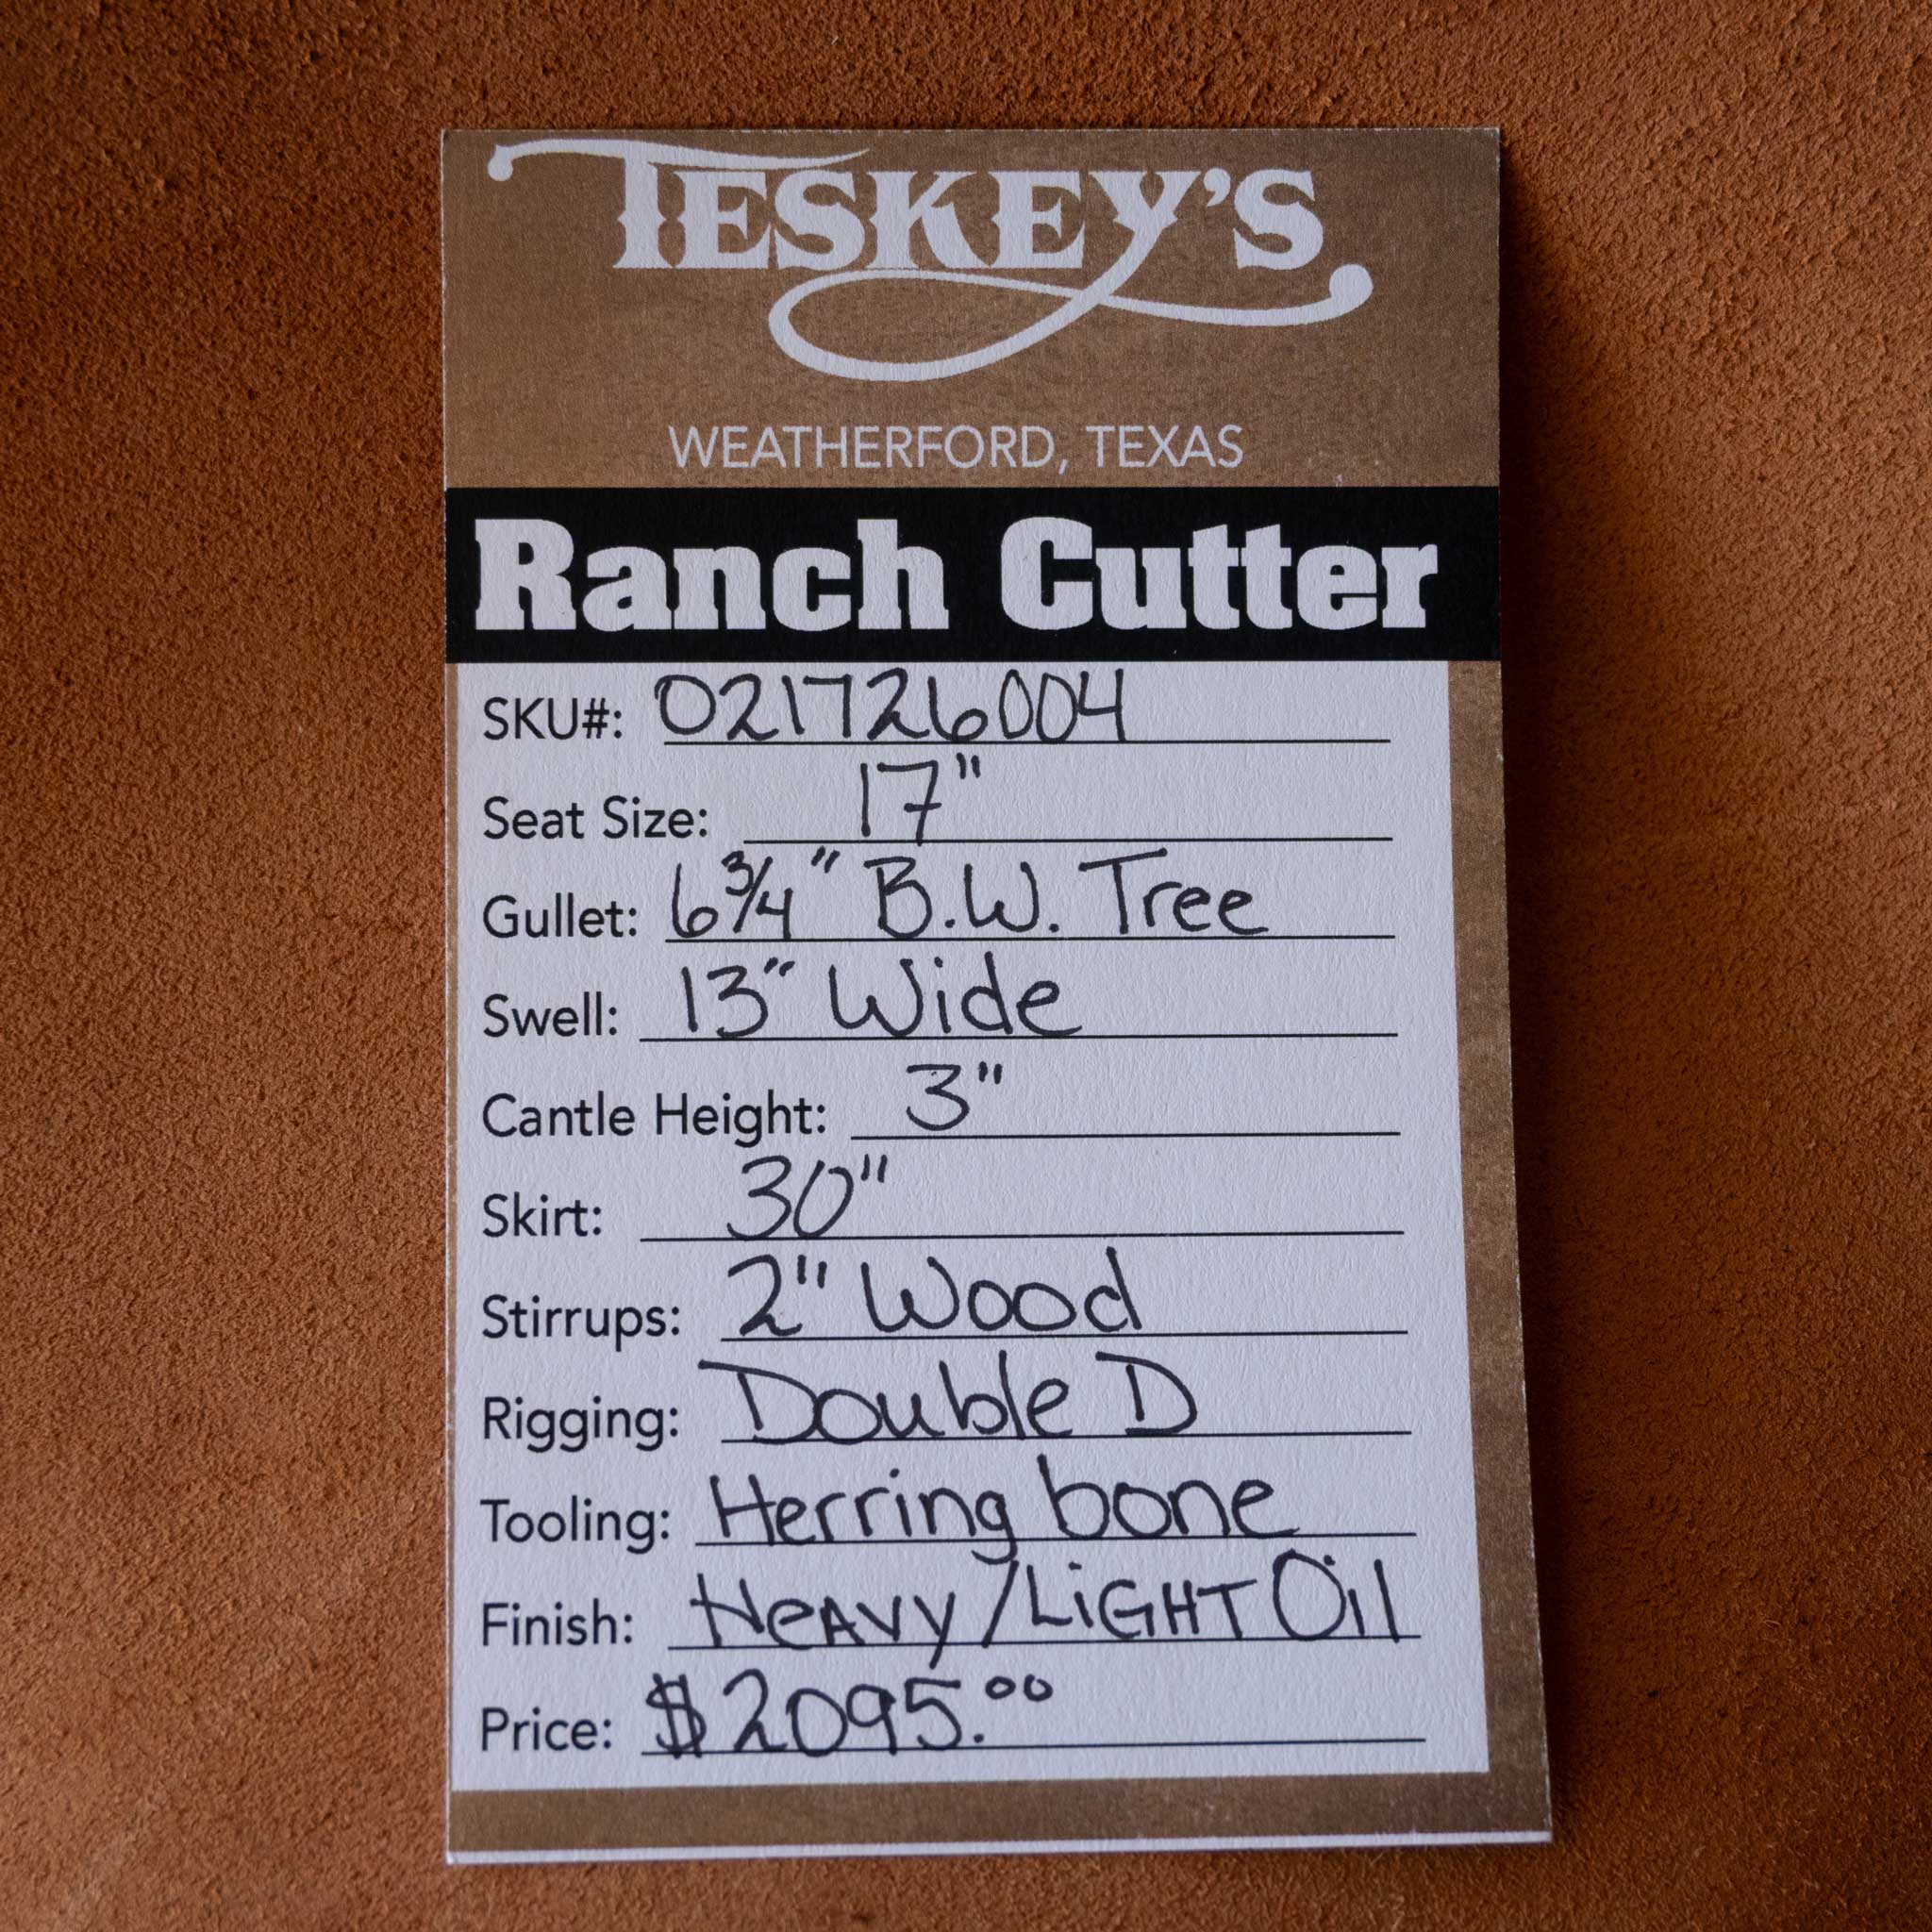 TESKEY'S
WEATHERFORD, TEXAS
Ranch Cutter
SKU#: 021726004
Seat Size: 17"
Gullet: 6 3/4" B.W. Tree
Swell: 13" Wide
Cantle Height: 3"
Skirt: 30"
Stirrups: 2" Wood
Rigging: Double D
Tooling: Herring bone
Finish: HeAVY/LiGHT Oil
Price: $2095.00